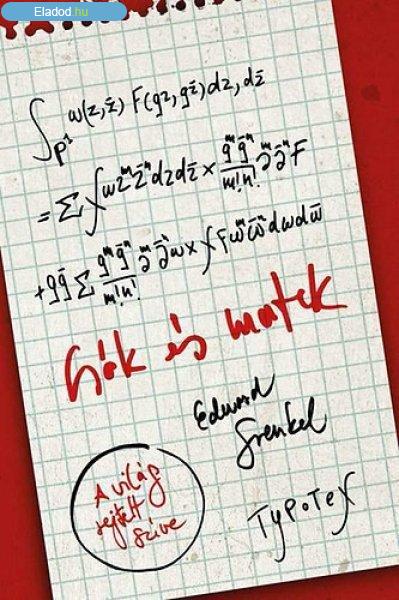 Eladod.hu
∫_{P¹} ω(z,z̄) F(qz, q̄z̄)dz, dz̄
= Σ∫ωz^m z̄^n dzdz̄ × (q^m q̄^n)/(m!n!) ∂^m ∂̄^n F
+ qq̄ Σ (q^m q̄^n)/(m!n!) ∂^m ∂̄^n ω × ∫Fω^m ω̄^n dωdω̄
Csók és matek
Edward
Frenkel
A világ
rejtett
szíve
TypoTeX